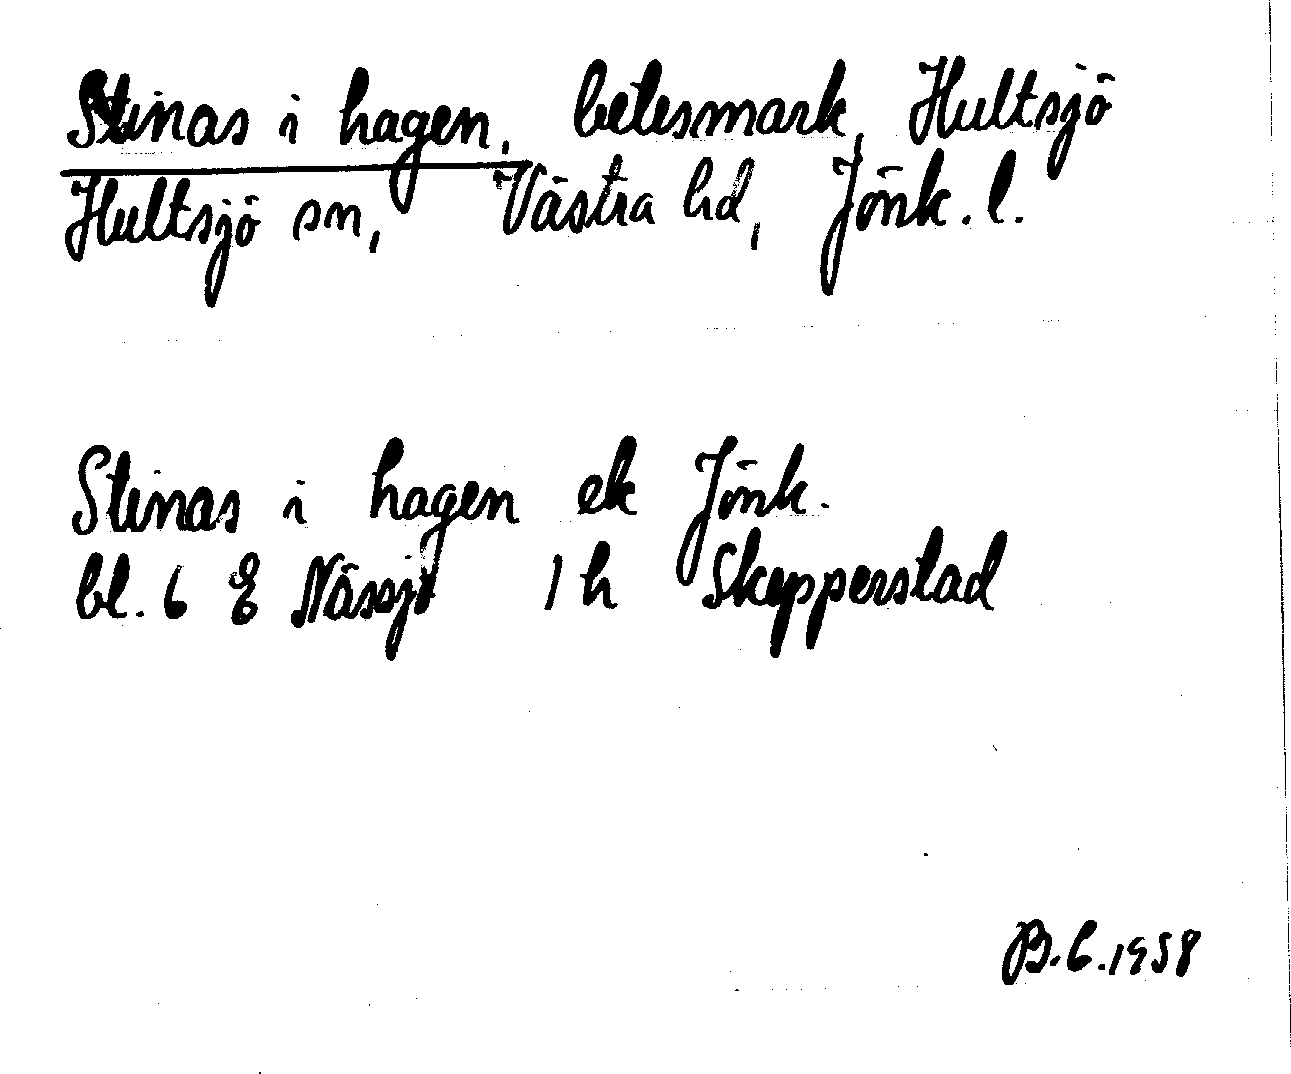 Stinas i hagen, betesmark, Hultsjö
Hultsjö sn, Västra hd, Jönk. l.
Stinas i hagen ek Jönk.
bl. 6 E Nässjö 1 h Skepperstad
B.C. 1958